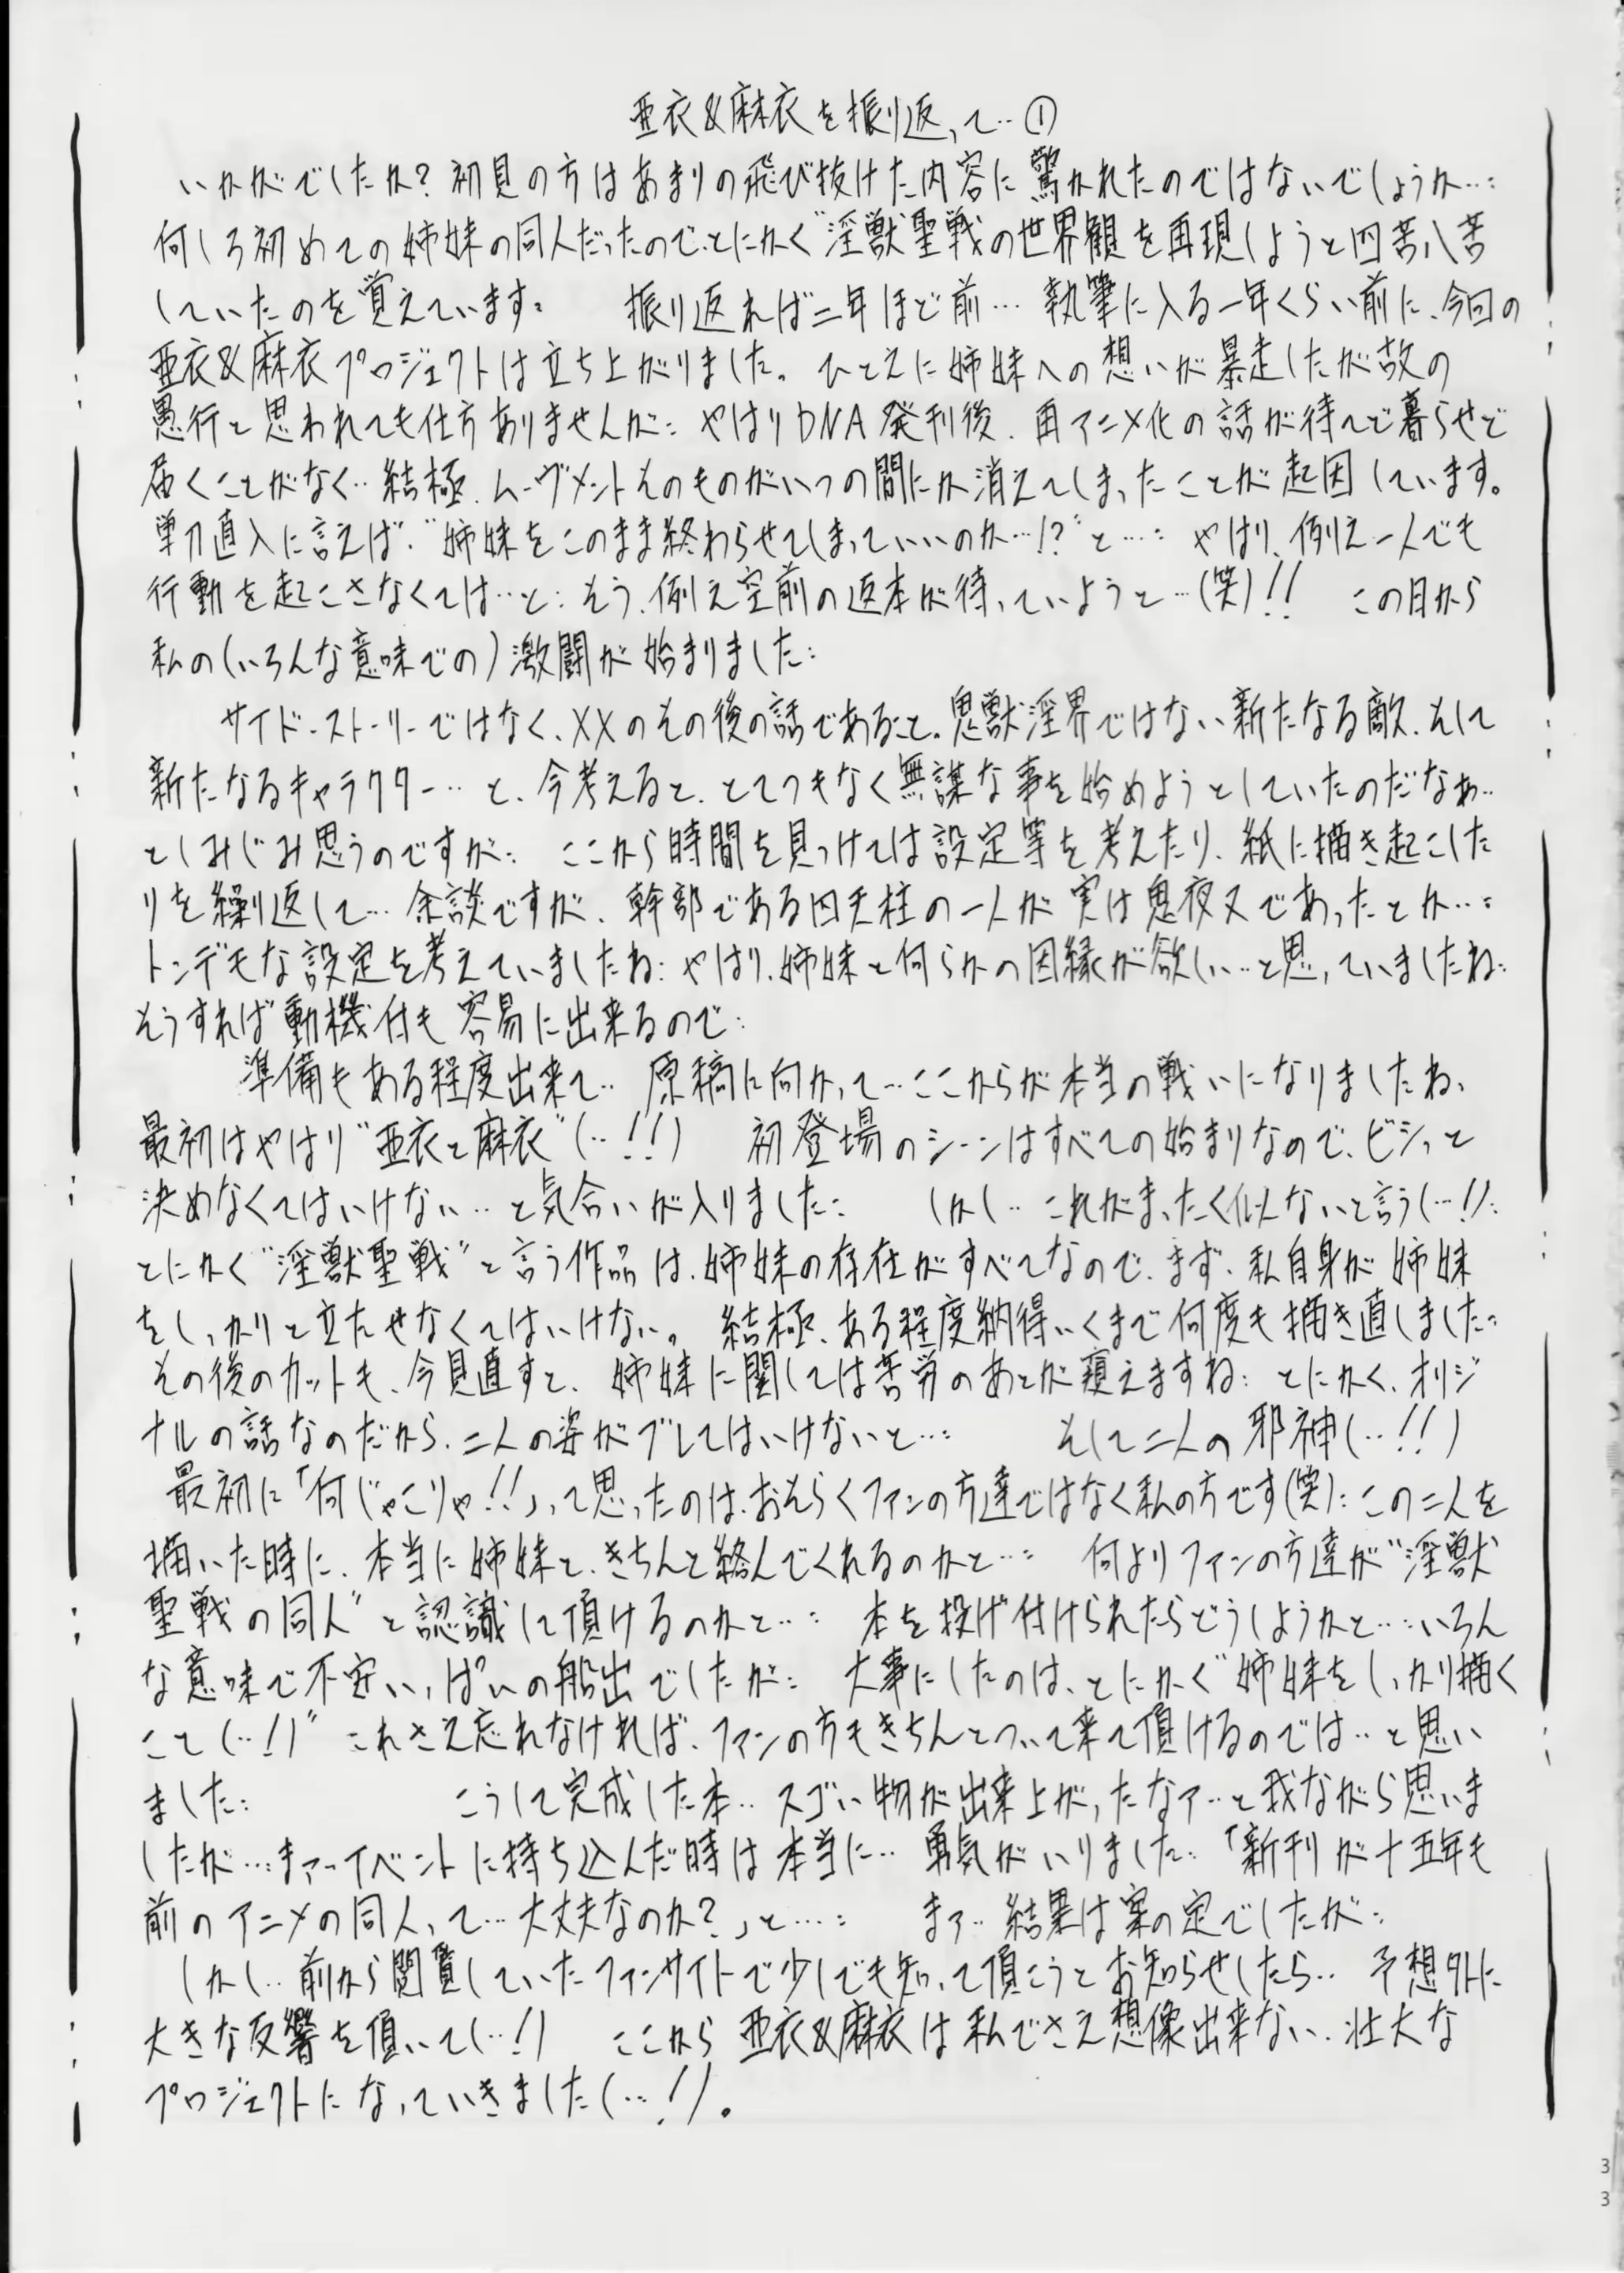 亜衣&麻衣を振り返って‥①
いかがでしたか？初見の方はあまりの飛び抜けた内容に驚かれたのではないでしょうか…：
何しろ初めての姉妹の同人だったので、とにかく“淫獣聖戦の世界観を再現しようと四苦八苦
していたのを覚えています： 振り返れば二年ほど前… 執筆に入る一年くらい前に、今回の
亜衣&麻衣プロジェクトは立ち上がりました。ひとえに姉妹への想いが暴走したが故の
愚行と思われても仕方ありませんが： やはりDNA発刊後、再アニメ化の話が待てど暮らせど
届くことがなく‥結極、ムーヴメントそのものがいつの間にか消えてしまったことが起因しています。
単刀直入に言えば、“姉妹をこのまま終わらせてしまっていいのか…!?”と…： やはり、例え一人でも
行動を起こさなくては…と：そう、例え空前の返本が待っていようと…(笑)!! この日から
私の(いろんな意味での)激闘が始まりました：
サイド・ストーリーではなく、XXのその後の話であること。鬼獣淫界ではない新たなる敵、そして
新たなるキャラクター…と、今考えると、とてつもなく無謀な事を始めようとしていたのだなぁ‥
としみじみ思うのですが： ここから時間を見つけては設定等を考えたり、紙に描き起こした
りを繰り返して… 余談ですが、幹部である四天柱の一人が実は鬼夜叉であったとか…：
トンデモな設定を考えていましたね：やはり、姉妹と何らかの因縁が欲しい…と思っていましたね：
そうすれば動機付も容易に出来るので：
準備もある程度出来て‥ 原稿に向かって…ここからが本当の戦いになりましたね、
最初はやはり“亜衣と麻衣”(‥!!) 初登場のシーンはすべての始まりなので、ビシッと
決めなくてはいけない‥と気合いが入りました： しかし‥これがまったく似ないと言う(…!)：
とにかく“淫獣聖戦”と言う作品は、姉妹の存在がすべてなので、まず、私自身が姉妹
をしっかりと立たせなくてはいけない。 結極、ある程度納得いくまで何度も描き直しました：
その後のカットも、今見直すと、姉妹に関しては苦労のあとが窺えますね： とにかく、オリジ
ナルの話なのだから、二人の姿がブレてはいけないと…： そして二人の邪神(‥!!)
最初に「何じゃこりゃ!!」って思ったのは、おそらくファンの方達ではなく私の方です(笑)：この二人を
描いた時に、本当に姉妹と、きちんと絡んでくれるのかと…： 何よりファンの方達が“淫獣
聖戦の同人”と認識して頂けるのかと…： 本を投げ付けられたらどうしようかと…：いろん
な意味で不安いっぱいの船出でしたが： 大事にしたのは、とにかく“姉妹をしっかり描く
こと(‥!)” これさえ忘れなければ、ファンの方もきちんとついて来て頂けるのでは‥と思い
ました： こうして完成した本‥スゴい物が出来上がったなァ‥と我ながら思いま
したが…まァ～イベントに持ち込んだ時は本当に‥勇気がいりました：「新刊が十五年も
前のアニメの同人って…大丈夫なのか？」と…： まァ‥結果は案の定でしたが：
しかし‥前から閲覧していたファンサイトで少しでも知って頂こうとお知らせしたら‥ 予想外に
大きな反響を頂いて(‥!) ここから亜衣&麻衣は私でさえ想像出来ない、壮大な
プロジェクトになっていきました(‥!)。
3
3